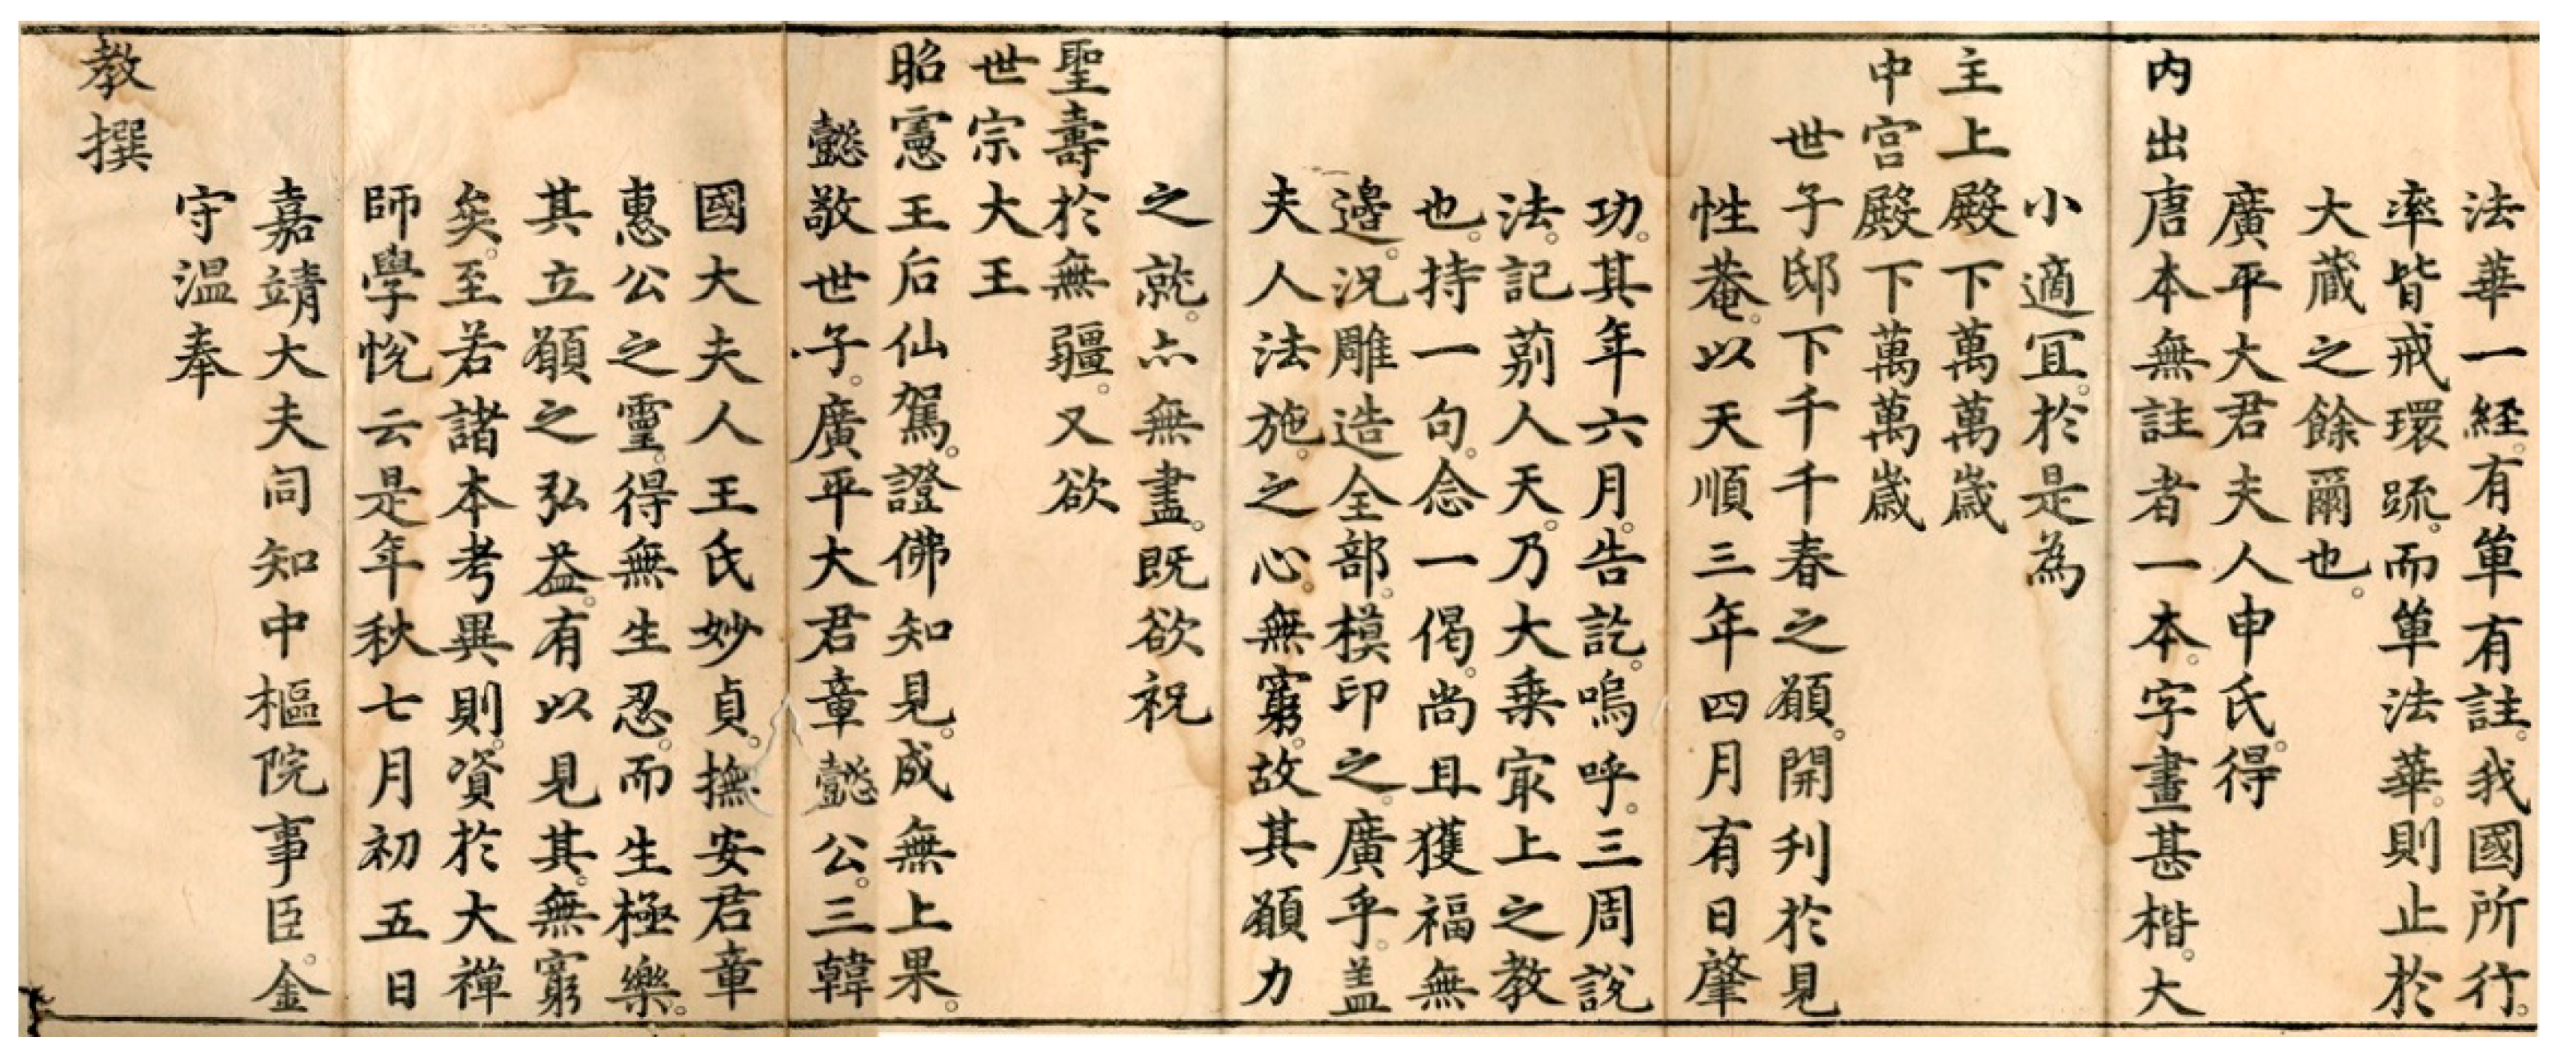 法華一經有單有註我國所行
率皆戒環䟽而單法華則止於
大蔵之餘爾也
廣平大君夫人申氏得
内出唐本無註者一本字畫甚楷大
小適冝於是為
主上殿下萬萬歲
中宮殿下萬萬歲
世子邸下千千春之願開刋於見
性菴以天順三年四月有日肇
功其年六月告訖嗚呼三周說
法記莂人天乃大乗㝡上之教
也持一句念一偈尚且獲福無
邊況雕造全部模印之廣乎盖
夫人法施之心無窮故其願力
之就亦無盡既欲祝
聖壽於無疆又欲
世宗大王
昭憲王后仙駕證佛知見成無上果
懿敬世子廣平大君章懿公三韓
國大夫人王氏妙貞撫安君章
惠公之靈得無生忍而生極樂
其立願之弘益有以見其無窮
矣至若諸本考異則資於大禪
師學悅云是年秋七月初五日
嘉靖大夫同知中樞院事臣金
守溫奉
教撰